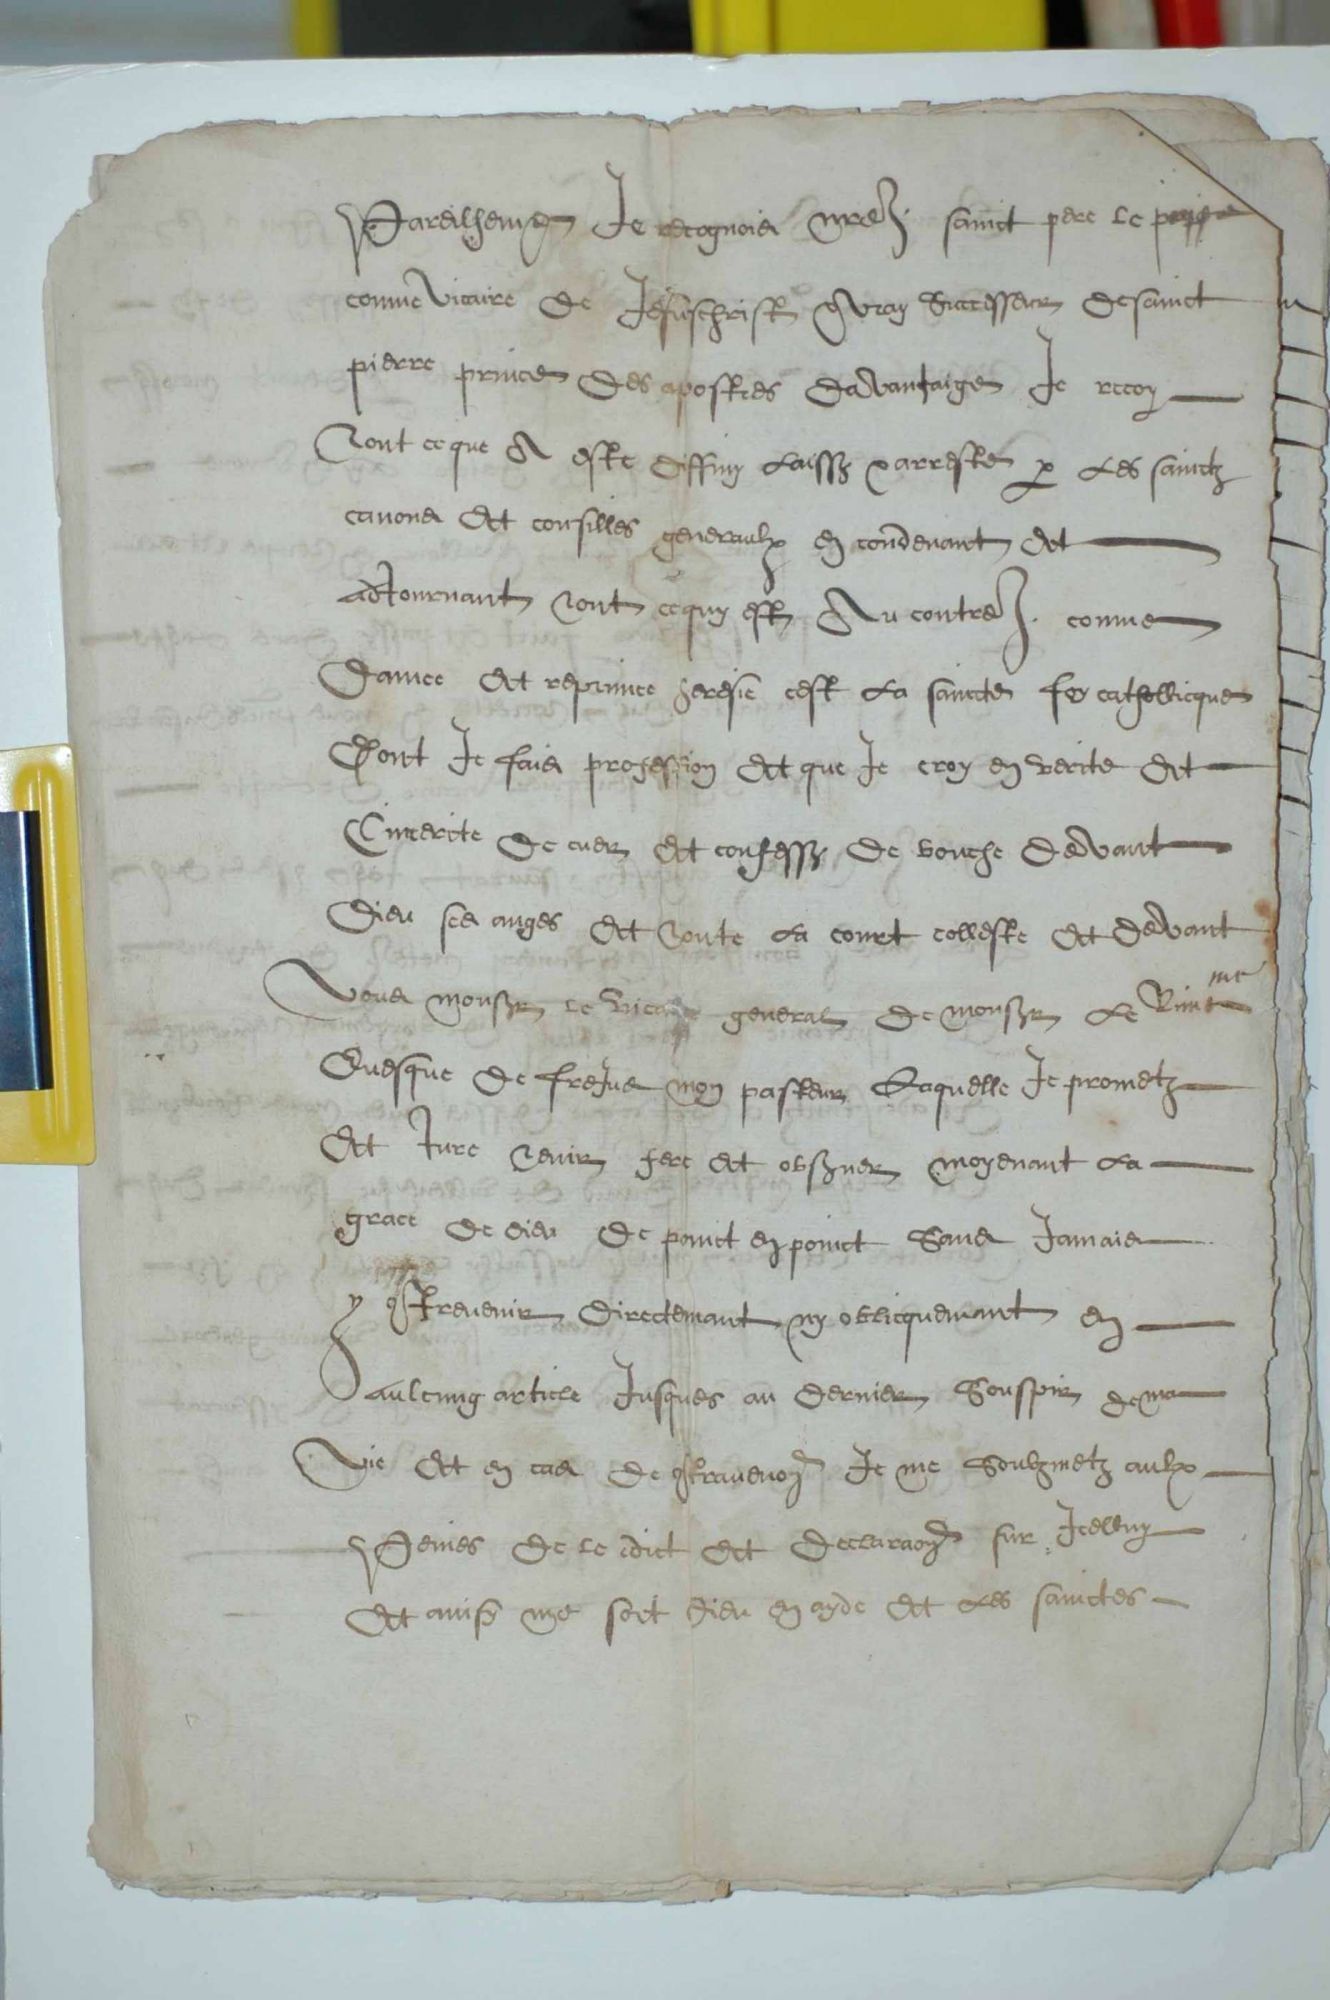 Pareilhement Je recognois nre sainct pere le pape
comme vicaire de Jesuschrist & vray successeur de sainct
pierre prince des apostres davantaige Je recoy
tout ce que A este diffiny laisse & arreste p les sainctz
canons et consilles generaulx en condenant et
adtournant tout ce quy est Au contre. comme
dainee et reprimee heresie cest la saincte foy catholicque
Dont Je fais profession et que Je croy en verite et
Cincerite de cuer et confesse de bouche devant
Dieu ses anges et toute la court celleste et devant
Vous monsr le vicaire general de monsr le Rmt me
Evesque de frejus mon pasteur Laquelle Je prometz
et Jure tenir fere et observer moyenant la
grace de dieu de poinct en poinct sans Jamais
y contrevenir directemant ny oblicquemant en
aulcung article Jusques au dernier souspir de ma
vie et en cas de contravenon Je me soubzmetz aulx
Peines de le edict et declaraon sur Icelluy
et ainsy me soit dieu en ayde et les sainctes